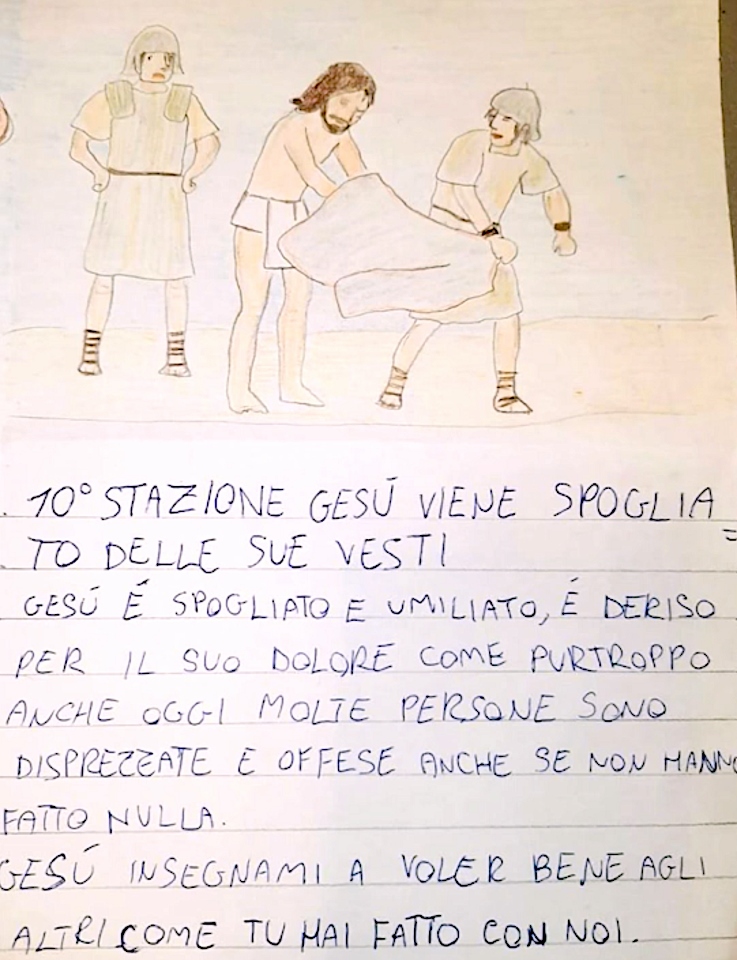 10° STAZIONE GESÚ VIENE SPOGLIA=
TO DELLE SUE VESTI
GESÚ É SPOGLIATO E UMILIATO, É DERISO
PER IL SUO DOLORE COME PURTROPPO
ANCHE OGGI MOLTE PERSONE SONO
DISPREZZATE E OFFESE ANCHE SE NON HANNO
FATTO NULLA.
GESÚ INSEGNAMI A VOLER BENE AGLI
ALTRI COME TU HAI FATTO CON NOI.